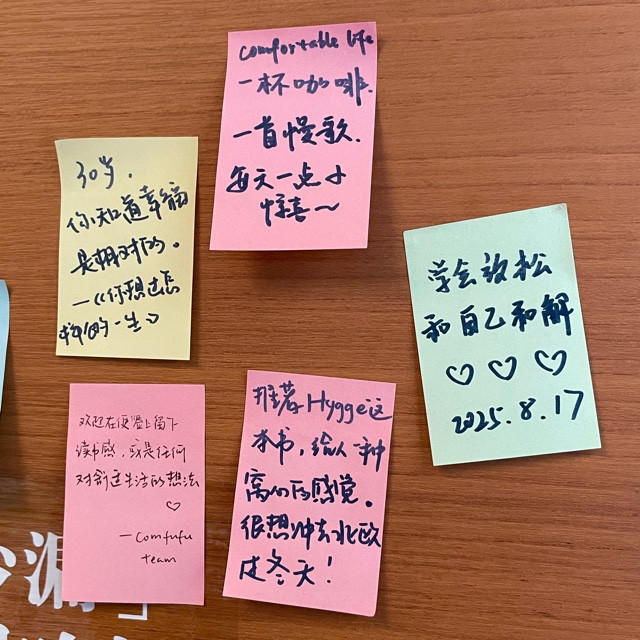 comfortable life
一杯咖啡.
一首慢歌.
每天一点小
惊喜~
30岁.
你知道幸福
是相对的。
—《你想过怎
样的一生》
学会放松
和自己和解
♡ ♡ ♡
2025.8.17
欢迎在便签上留下
读书感，或是任何
对舒适生活的想法
♡
—comfufu
team
推荐Hygge这
本书，给人一种
窝心的感觉。
很想冲去北欧
过冬天！
漏」